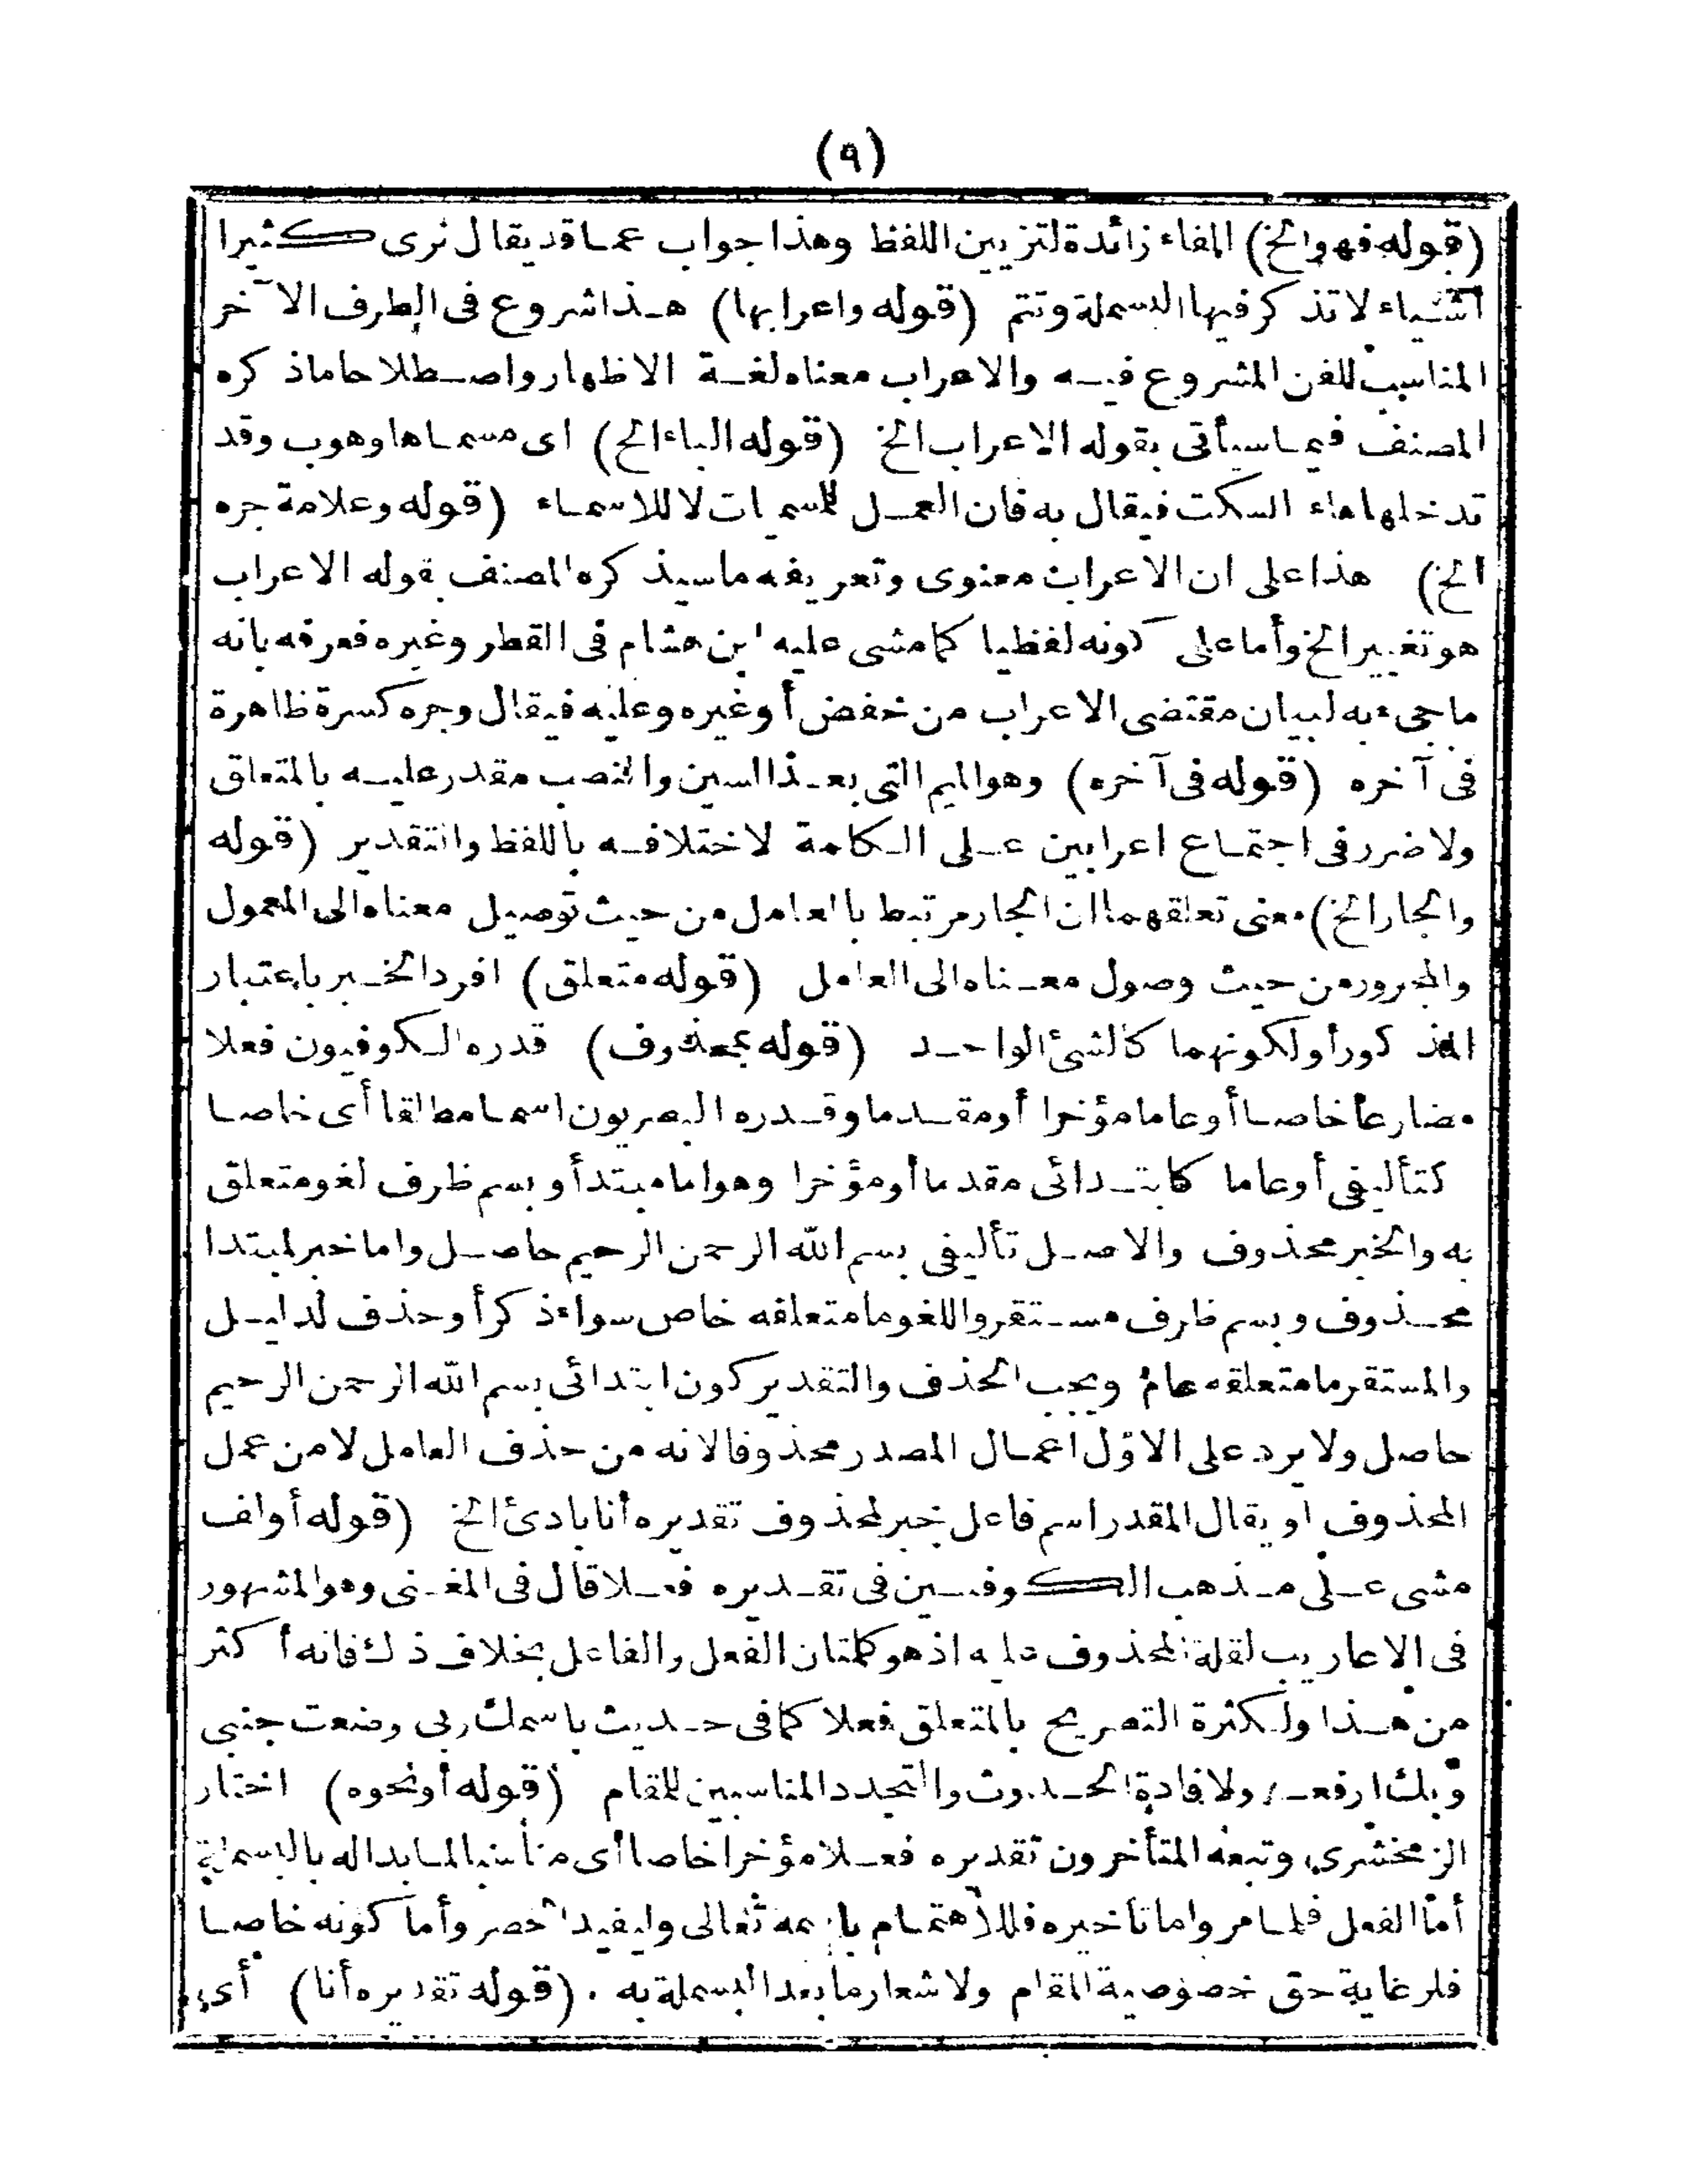 (٩)
(قوله فهو الخ) الفاء زائدة لتزيين اللفظ وهذا جواب عما قد يقال نرى كثيرا
أشياء لا تذكر فيها البسملة وتتم (قوله واعرابها) هذا شروع فى الطرف الآخر
المناسب للفن المشروع فيه والاعراب معناه لغة الاظهار واصطلاحا ماذكره
المصنف فيما سيأتى بقوله الاعراب الخ (قوله الباء الخ) اى مسماها وهوب وقد
تدخلها هاء السكت فيقال به فان العمل للمسميات لا للاسماء (قوله وعلامة جره
الخ) هذا على ان الاعراب معنوى وتعريفه ما سيذكره المصنف بقوله الاعراب
هو تغيير الخ وأما على كونه لفظيا كما مشى عليه ابن هشام فى القطر وغيره فعرفه بانه
ما جىء به لبيان مقتضى الاعراب من خفض أو غيره وعليه فيقال وجره كسرة ظاهرة
فى آخره (قوله فى آخره) وهو الميم التى بعد السين والنصب مقدر عليه بالمتعلق
ولا ضرر فى اجتماع اعرابين على الكلمة لاختلافه باللفظ والتقدير (قوله
والجار الخ) معنى تعلقهما ان الجار مرتبط بالعامل من حيث توصيل معناه الى المعمول
والمجرور من حيث وصول معناه الى العامل (قوله متعلق) افرد الخبر باعتبار
المذكور أو لكونهما كالشئ الواحد (قوله بمحذوف) قدره الكوفيون فعلا
مضارعا خاصا أو عاما مؤخرا أو مقدما وقدره البصريون اسما مطلقا أى خاصا
كتأليفى أو عاما كابتدائى مقدما أو مؤخرا وهو اما مبتدأ وبسم ظرف لغو متعلق
به والخبر محذوف والاصل تأليفى بسم الله الرحمن الرحيم حاصل واما خبر لمبتدا
محذوف وبسم ظرف مستقر واللغو ما متعلقه خاص سواء ذكر أو حذف لدليل
والمستقر ما متعلقه عام ويجب الحذف والتقدير كون ابتدائى بسم الله الرحمن الرحيم
حاصل ولا يرد على الاوّل اعمال المصدر محذوفا لانه من حذف العامل لا من عمل
المحذوف او يقال المقدر اسم فاعل خبر لمحذوف تقديره أنا بادئ الخ (قوله أواف
مشى على مذهب الكوفيين فى تقديره فعلا قال فى المغنى وهو المشهور
فى الاعاريب لقلة المحذوف عليه اذ هو كلمتان الفعل والفاعل بخلاف ذلك فانه أكثر
من هذا ولكثرة التصريح بالمتعلق فعلا كما فى حديث باسمك ربى وضعت جنبى
وبك ارفعه ولافادة الحدوث والتجدد المناسبين للمقام (قوله أو نحوه) اختار
الزمخشرى وتبعه المتأخرون تقديره فعلا مؤخرا خاصا أى مناسبا لما يبدا له بالبسملة
أما الفعل فلما مر واما تأخيره فللاهتمام باسمه تعالى وليفيد الحصر وأما كونه خاصا
فلرعاية حق خصوصية المقام ولاشعار ما بعد البسملة به . (قوله تقديره أنا) أى